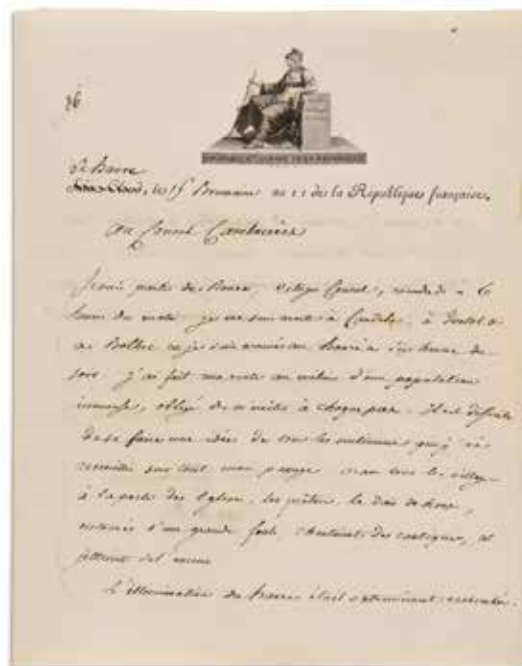 26
le Havre
Saint-Cloud, le 15 Brumaire an 11 de la République française.
Au Consul Cambacérès
Je suis parti de Rouen, Citoyen Consul, vendredi à 6
heures du matin. je me suis arrêté à à Yvetot &
à Bolbec et je suis arrivé au havre à six heures du
soir. j'ai fait ma route au milieu d'une population
immense, obligé de m'arrêter à chaque pas. Il est difficile
de se faire une idée de tous les que j'ai
recueillis sur tout mon passage. dans tous les villages
à la porte des églises, les prêtres, le dais dehors,
d'une grande foule, chantaient des cantiques, et
jettaient de l'encens
L'illumination du havre était extrêmement